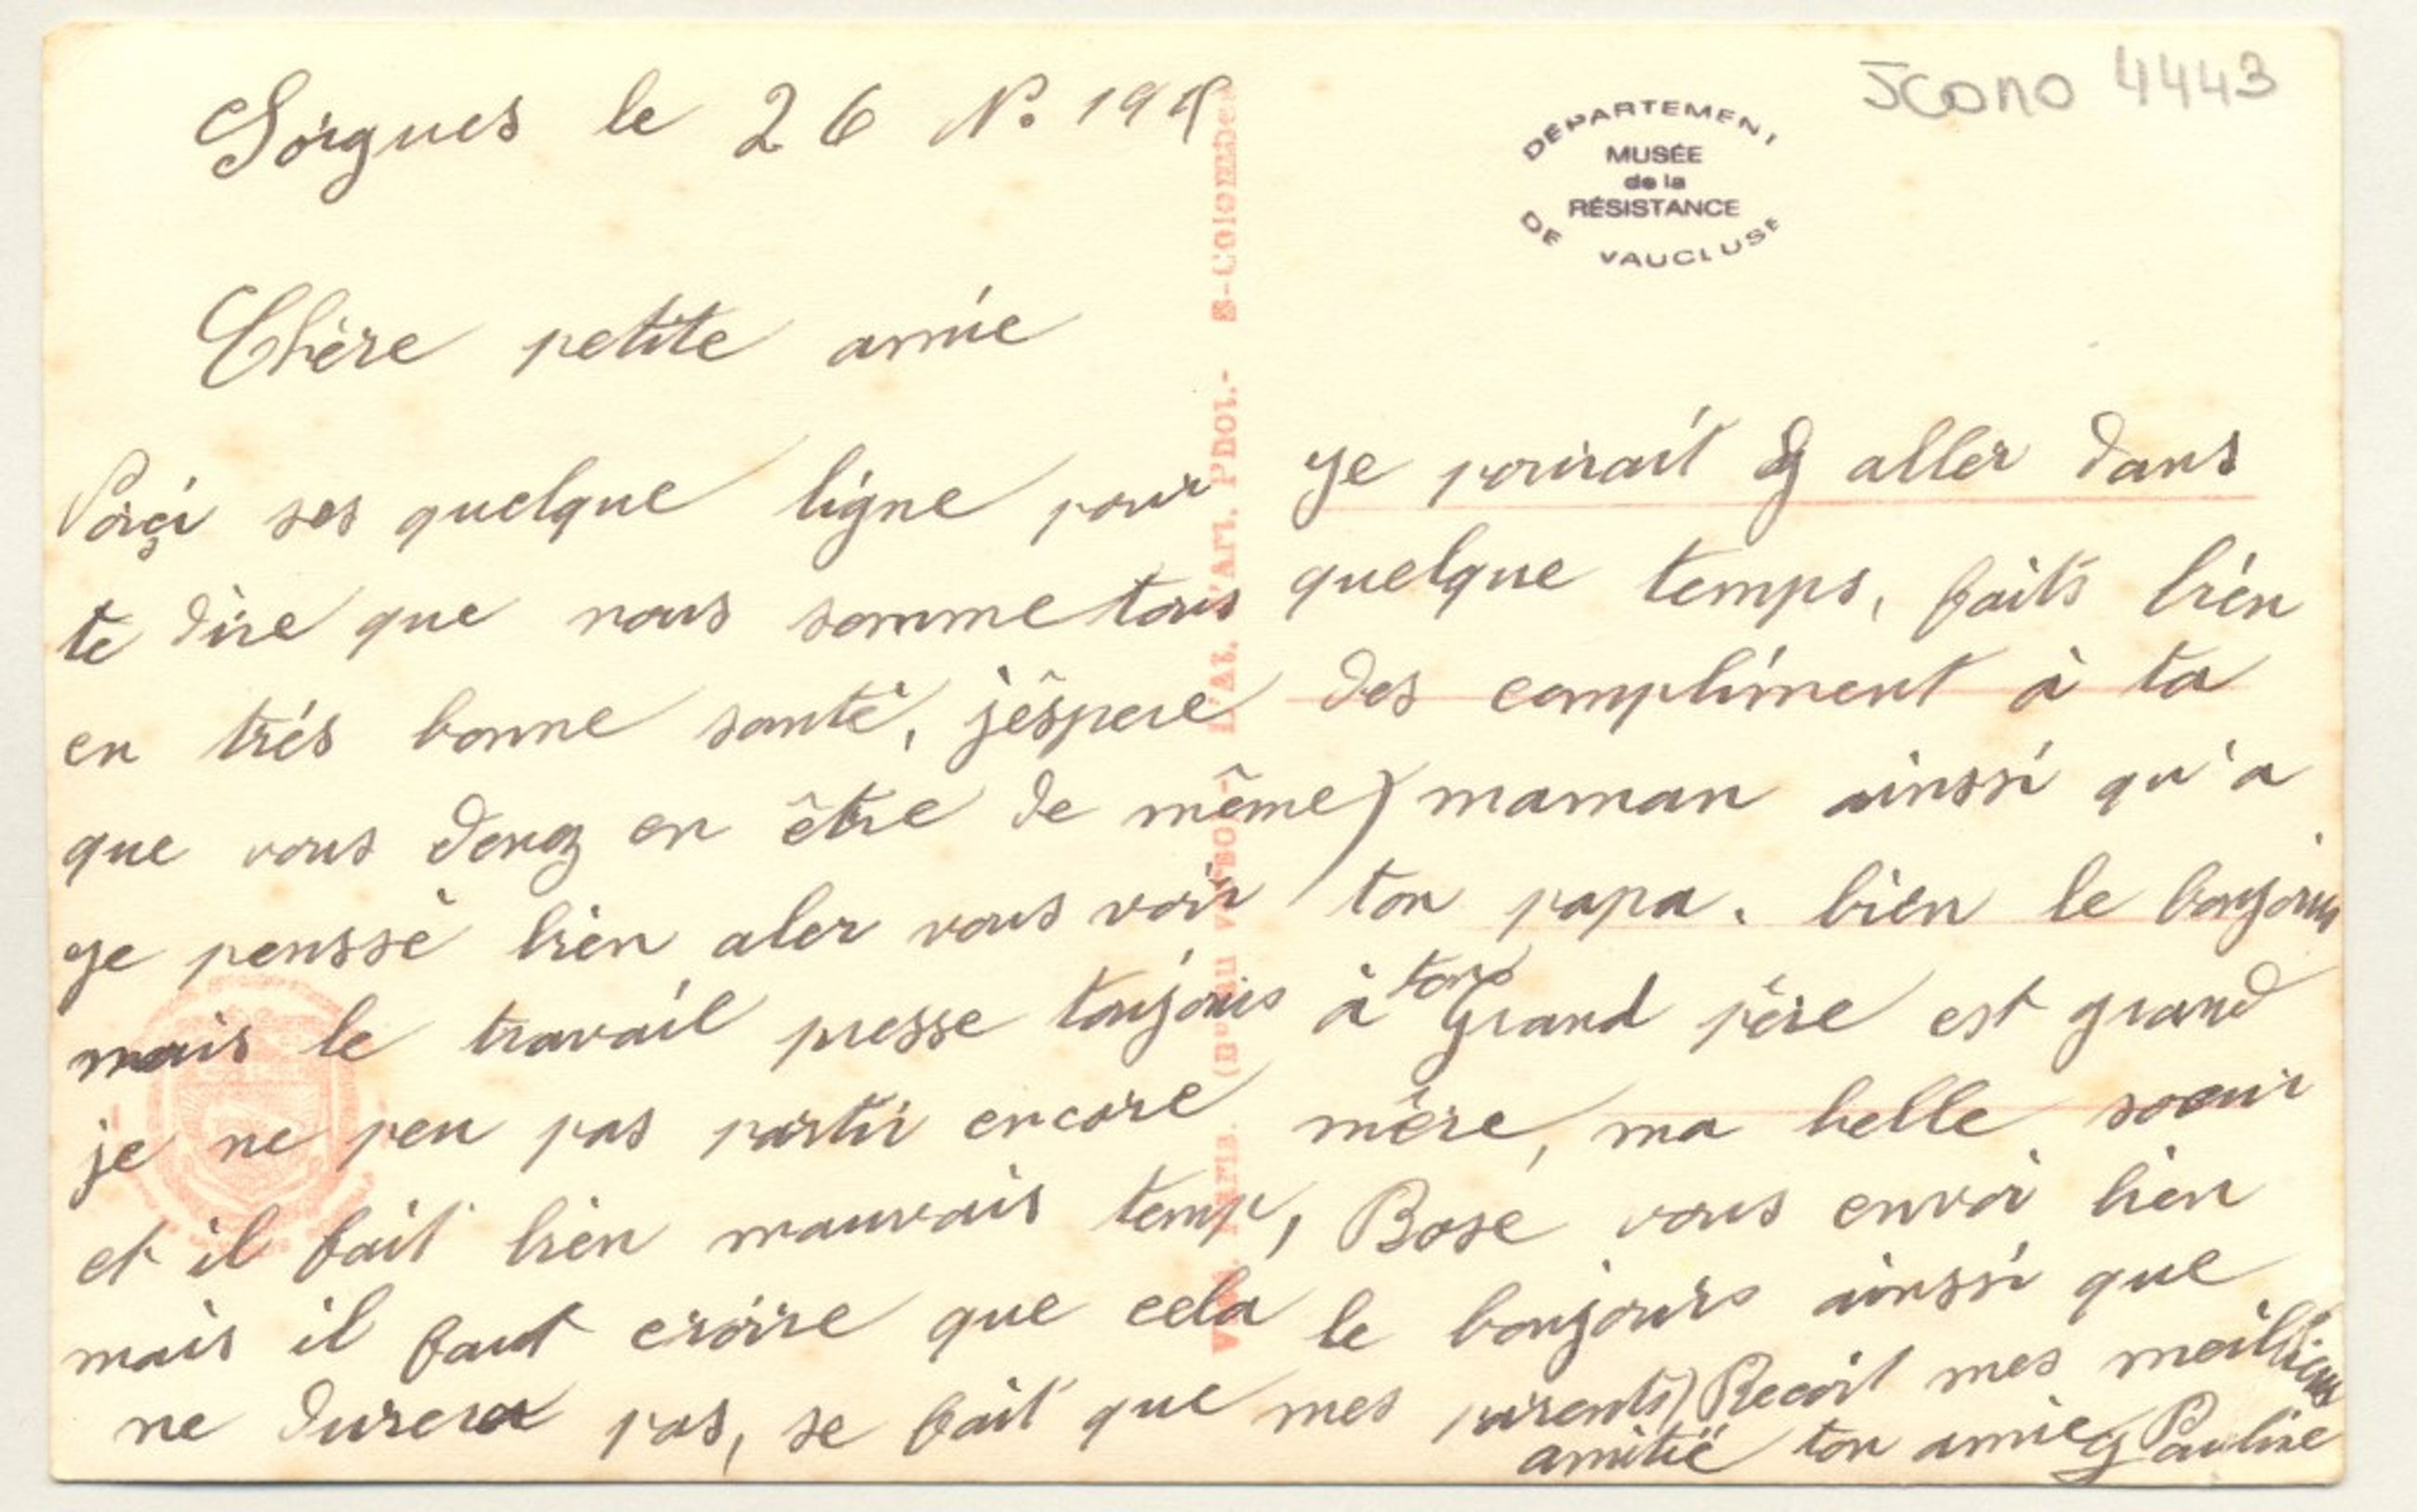 Sorgues le 26 N. 191
Chère petite amie
Voiçi ses quelque ligne pour
te dire que nous somme tous
en trés bonne santé, j'éspere
que vous devez en être de même
ge penssé bien aler vous voir
mais le travail presse toujours
je ne peu pas partir encore
et il fait bien mauvais temp,
mais il faut croire que cela
ne durera pas, se fait que
JCono 4443
DÉPARTEMENT
MUSÉE
de la
RÉSISTANCE
DE VAUCLUSE
ge pourait y aller dans
quelque temps, faits bien
des compliment à ta
maman ainssi qu'a
ton papa. bien le bonjour
à tons grand père est grand
mère, ma belle soeur
Rose vous envoi bien
le bonjours ainssi que
mes parents) Recoit mes meillieur
amitié ton amie Pauline